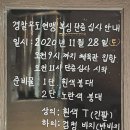 경찰무도연맹 본심 단증 심사 안내
일시: 2020년 11월 28일(토)
오전 9시까지 체육관 집합
오전 11시 단증 심사 시작
준비물: 1단 흰색 붕대
2단 노란색 붕대
상의: 흰색 T(긴팔)
하의: 검정 바지(반바지)